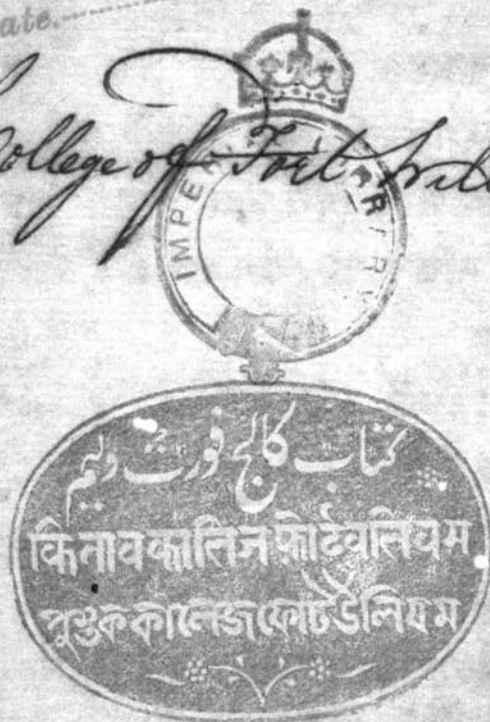 ate.
College of Fort Will
IMPE
کتاب کالج فورت ولیم
किताबकालिजफ़ोर्टवलियम
পুস্তককালেজফোর্টউলিয়ম